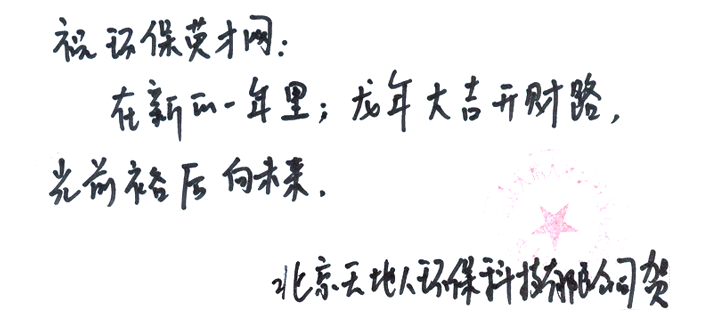 祝环保英才网：
在新的一年里；龙年大吉开财路，
光前裕后向未来．
北京天地人环保科技有限公司贺